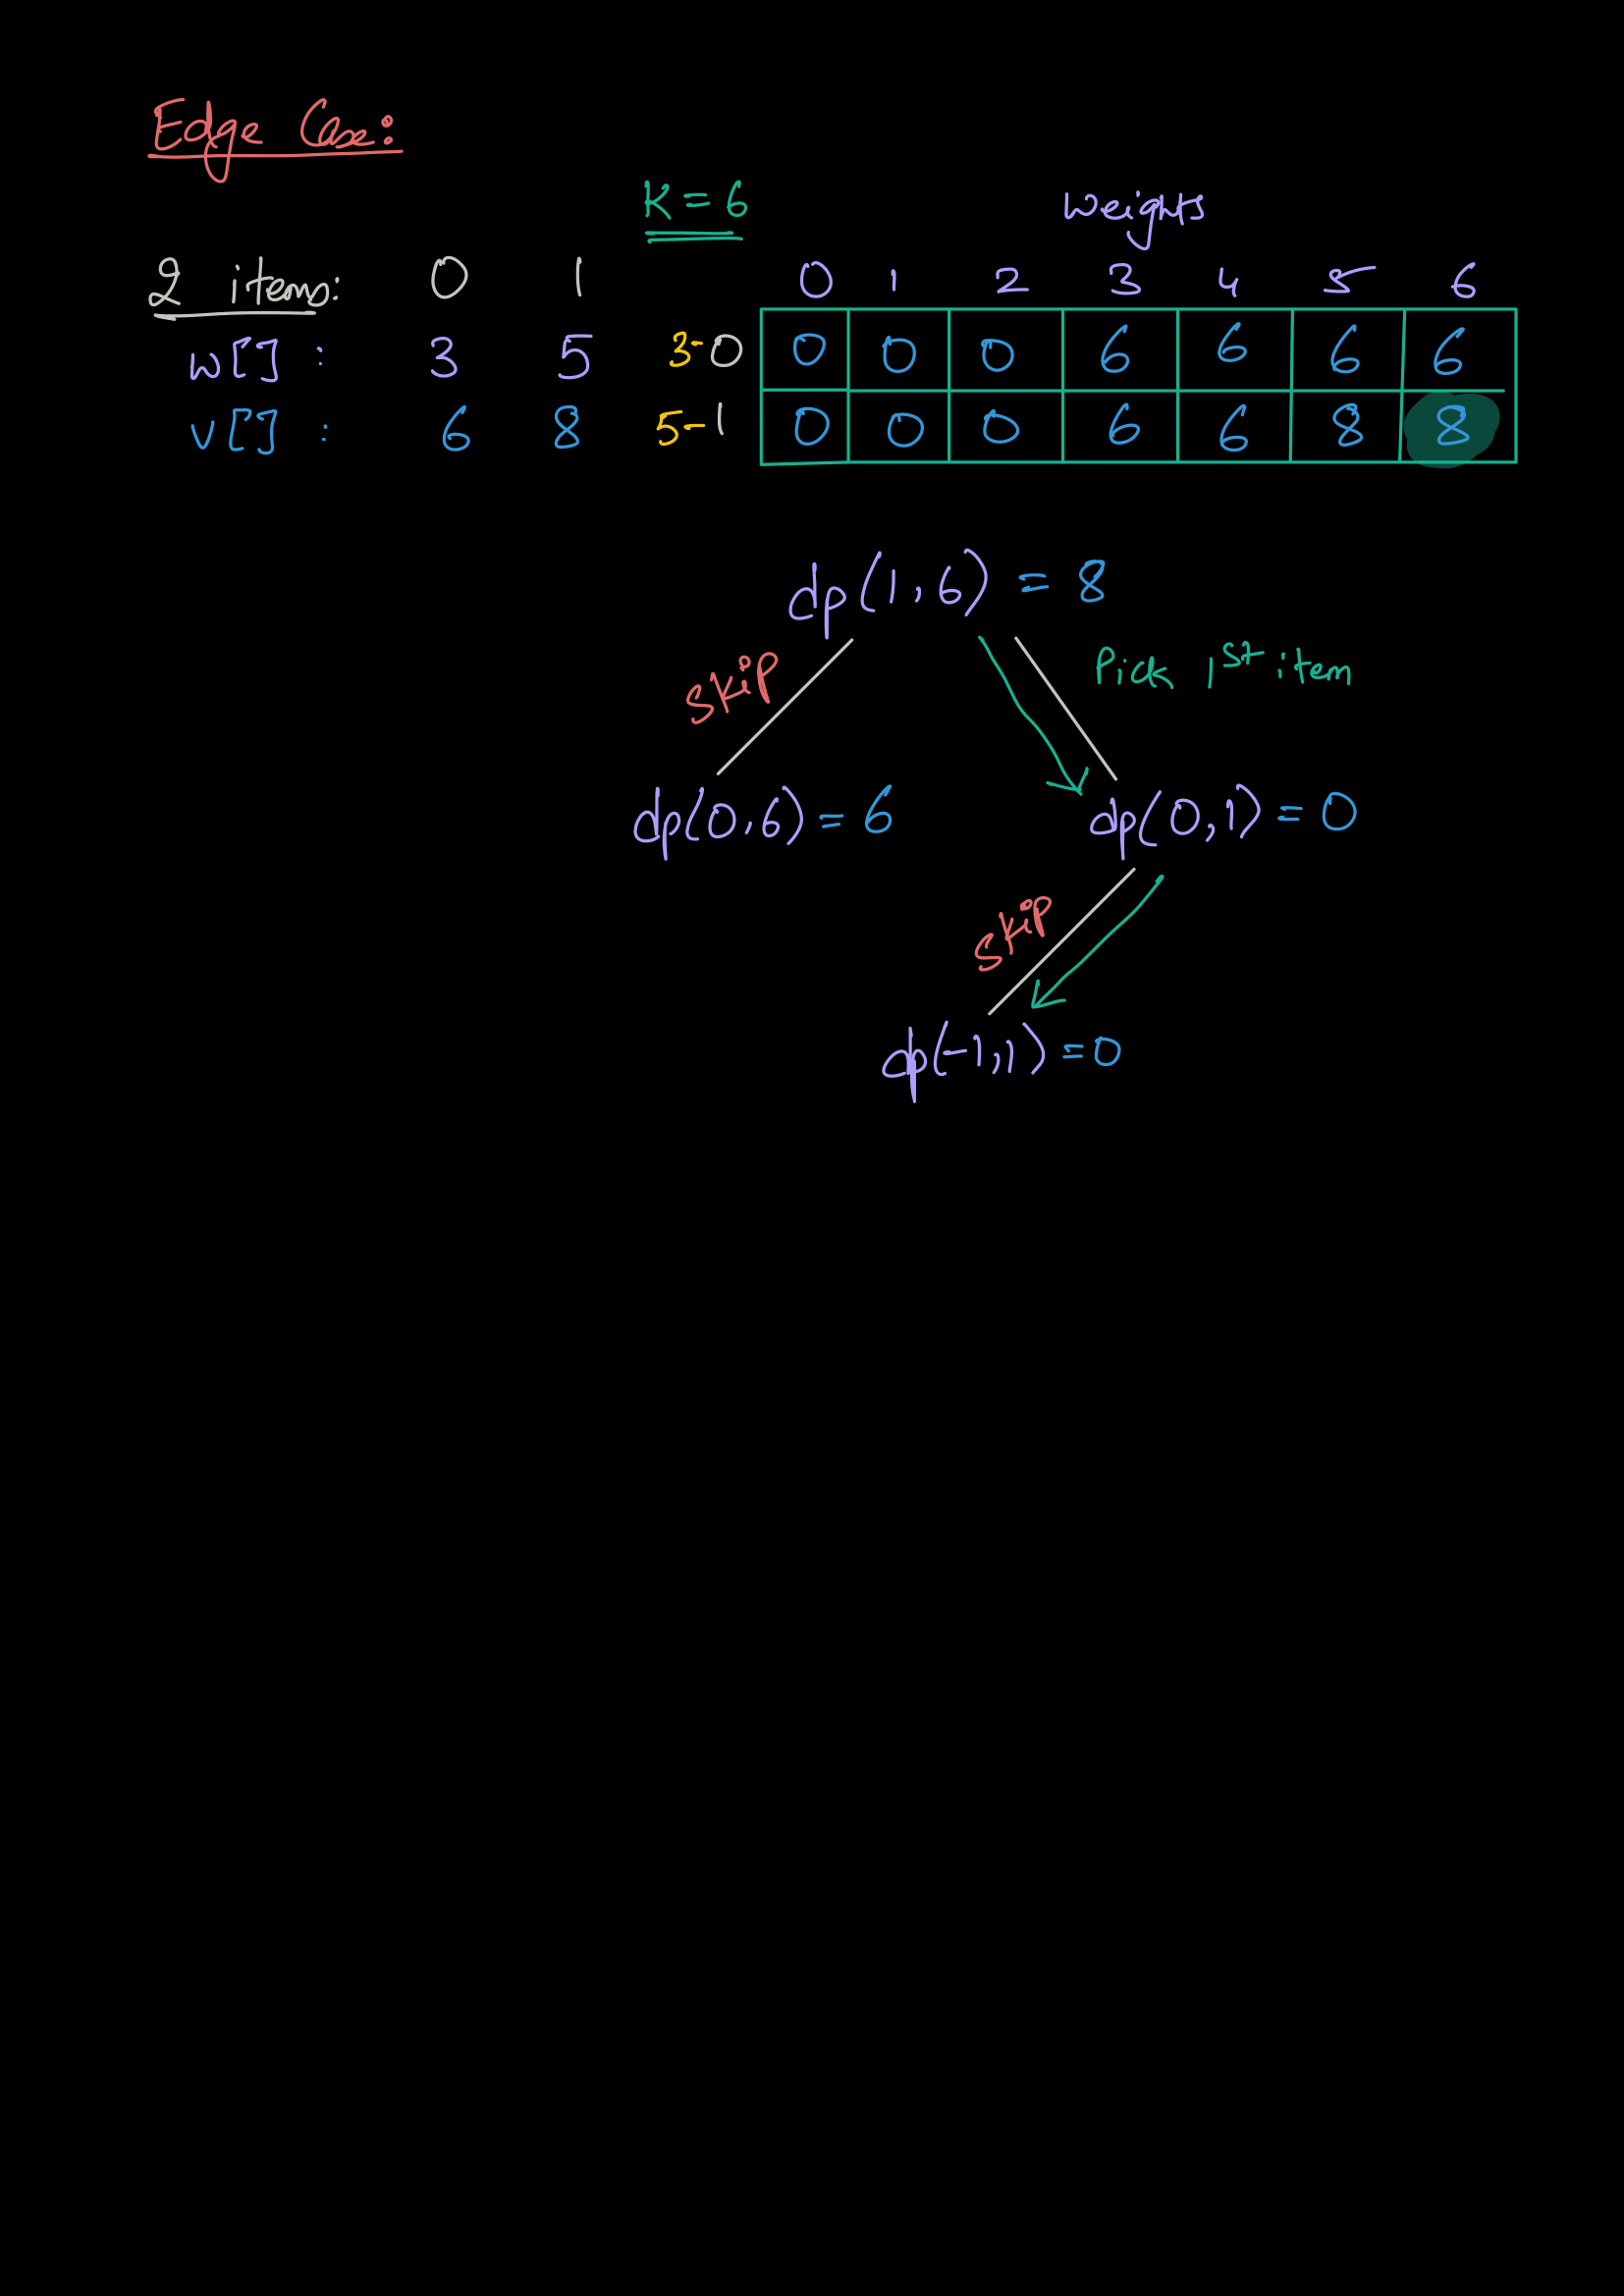 Edge Case:
K = 6
Weights
2 items: 0 1
0 1 2 3 4 5 6
w[] : 3 5
3-0 0 0 0 6 6 6 6
v[] : 6 8
5-1 0 0 0 6 6 8 8
dp(1,6) = 8
skip
Pick 1st item
dp(0,6) = 6
dp(0,1) = 0
skip
dp(-1,1) = 0